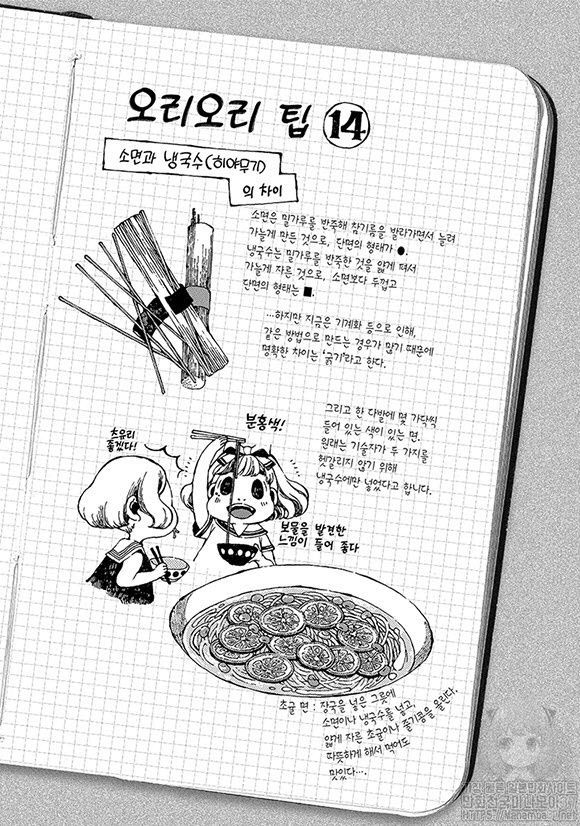 오리오리 팁 14
소면과 냉국수(히야무기)
의 차이
소면은 밀가루를 반죽해 참기름을 발라가면서 늘려
가늘게 만든 것으로, 단면의 형태가 ●.
냉국수는 밀가루를 반죽한 것을 얇게 펴서
가늘게 자른 것으로, 소면보다 두껍고
단면의 형태는 ■.
...하지만 지금은 기계화 등으로 인해,
같은 방법으로 만드는 경우가 많기 때문에
명확한 차이는 '굵기'라고 한다.
그리고 한 다발에 몇 가닥씩
들어 있는 색이 있는 면.
원래는 기술자가 두 가지를
헷갈리지 않기 위해
냉국수에만 넣었다고 합니다.
츠유리
좋겠다!
분홍색!
보물을 발견한
느낌이 들어 좋다
초귤 면 : 장국을 넣은 그릇에
소면이나 냉국수를 넣고,
얇게 자른 초귤이나 줄기콩을 올린다.
따뜻하게 해서 먹어도
맛있다....
Https://Manamoa.